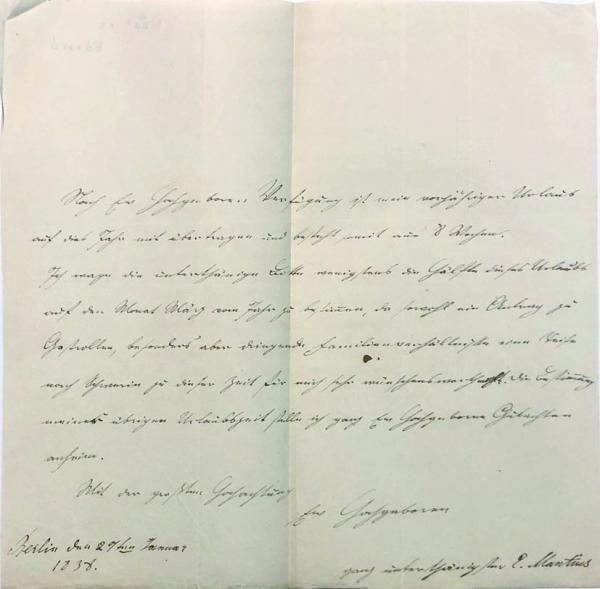 Nach Ew Hochgeboren Verfügung ist mein vorjähriger Urlaub
auf das Jahr mit übertragen und besteht somit aus 8 Wochen.
Ich wage die unterthänige Bitte wenigstens die Hälfte dieses Urlaubs
auf den Monat März vom Jahr zu bestimmen, da sowohl ein Antrag zu
Gastrollen, besonders aber dringende Familienverhältnisse eine Reise
nach Schwerin zu dieser Zeit für mich sehr wünschenswerth. Die Bestimmung
meiner übrigen Urlaubszeit stelle ich ganz Ew Hochgeboren Gutachten
anheim.
Mit der größten Hochachtung
Ew Hochgeboren
Berlin den 29ten Januar
1838.
ganz unterthänigster E. Mantius